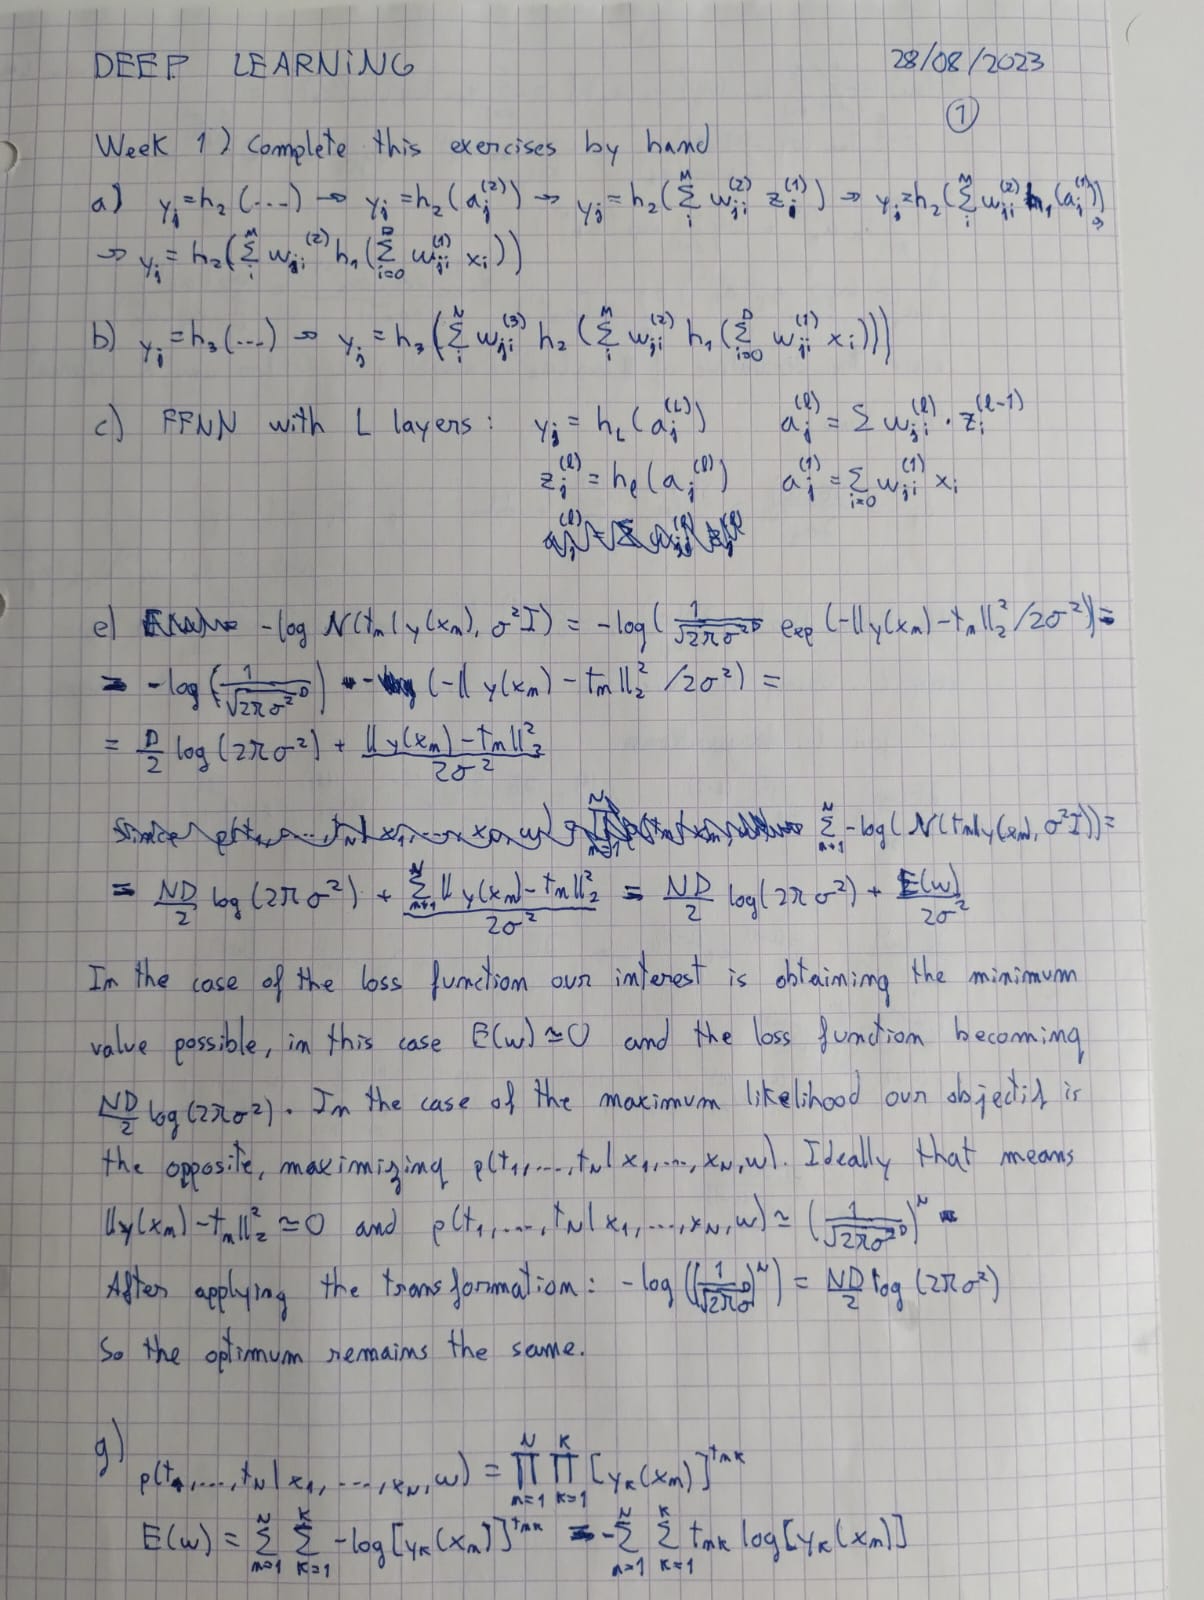 DEEP LEARNING 28/08/2023
①
Week 1) Complete this exercises by hand
a) y_j = h_2(...) → y_j = h_2(a_j^(2)) → y_j = h_2(Σ_i^M w_ji^(2) z_i^(1)) → y_j = h_2(Σ_i^M w_ji^(2) h_1(a_i^(1)))
→ y_j = h_2(Σ_i^M w_ji^(2) h_1(Σ_{i=0}^D w_ji^(1) x_i))
b) y_j = h_3(...) → y_j = h_3(Σ_i^N w_ji^(3) h_2(Σ_i^M w_ji^(2) h_1(Σ_{i=0}^D w_ji^(1) x_i)))
c) FFNN with L layers: y_j = h_L(a_j^(L)) a_j^(l) = Σ w_ji^(l) · z_i^(l-1)
z_j^(l) = h_l(a_j^(l)) a_j^(1) = Σ_{i=0} w_ji^(1) x_i
e) -log N(t_n | y(x_n), σ²I) = -log(1/√(2πσ²)^D exp(-||y(x_n) - t_n||_2^2 / 2σ²)) =
= -log(1/√(2πσ²)^D) - (-|| y(x_n) - t_n ||_2^2 / 2σ²) =
= D/2 log(2πσ²) + ||y(x_n) - t_n||_2^2 / 2σ²
Σ_{n=1}^N -log(N(t_n|y(x_n), σ²I)) =
= ND/2 log(2πσ²) + Σ_{n=1}^N ||y(x_n) - t_n||_2^2 / 2σ² = ND/2 log(2πσ²) + E(w)/2σ²
In the case of the loss function our interest is obtaining the minimum
value possible, in this case E(w) ≃ 0 and the loss function becoming
ND/2 log(2πσ²). In the case of the maximum likelihood our objectif is
the opposite, maximizing p(t_1,...,t_N | x_1,...,x_N, w). Ideally that means
||y(x_n) - t_n||_2^2 ≃ 0 and p(t_1,...,t_N | x_1,...,x_N, w) ≃ (1/√(2πσ²)^D)^N
After applying the transformation: -log((1/√(2πσ)^D)^N) = ND/2 log(2πσ²)
So the optimum remains the same.
g)
p(t_1,...,t_N | x_1,...,x_N, w) = Π_{n=1}^N Π_{k=1}^K [y_k(x_n)]^{t_nk}
E(w) = Σ_{n=1}^N Σ_{k=1}^K -log[y_k(x_n)]^{t_nk} = -Σ_{n=1}^N Σ_{k=1}^K t_nk log[y_k(x_n)]